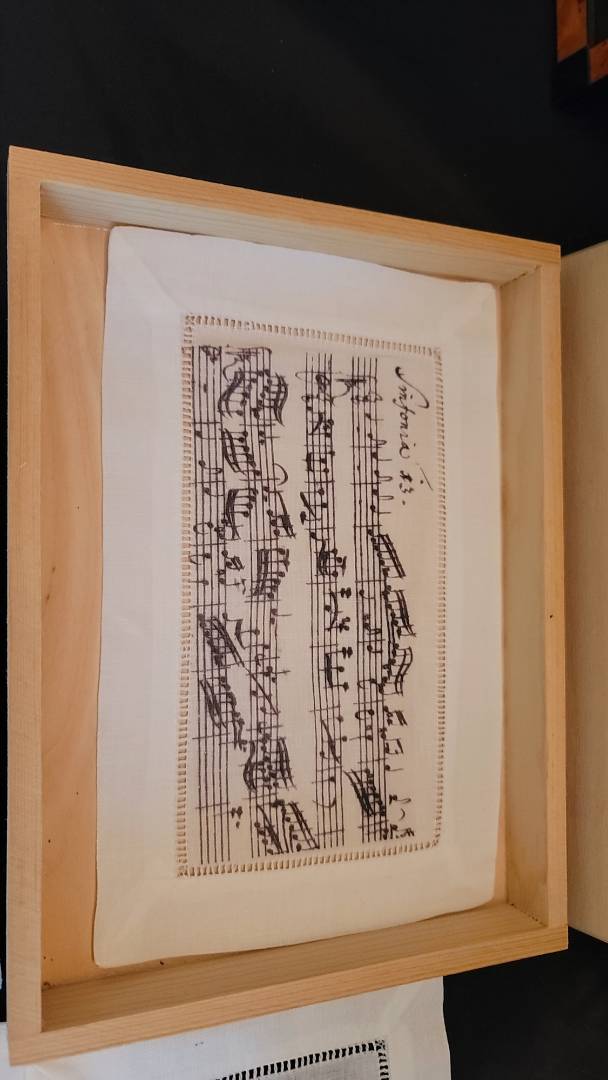 Sinfonia 13.